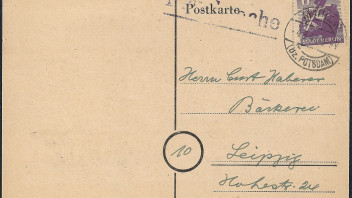 Postkarte
(Bz. POTSDAM)
Herrn Curt Haberer
Bäckerei
10
Leipzig
Hohestr. 24